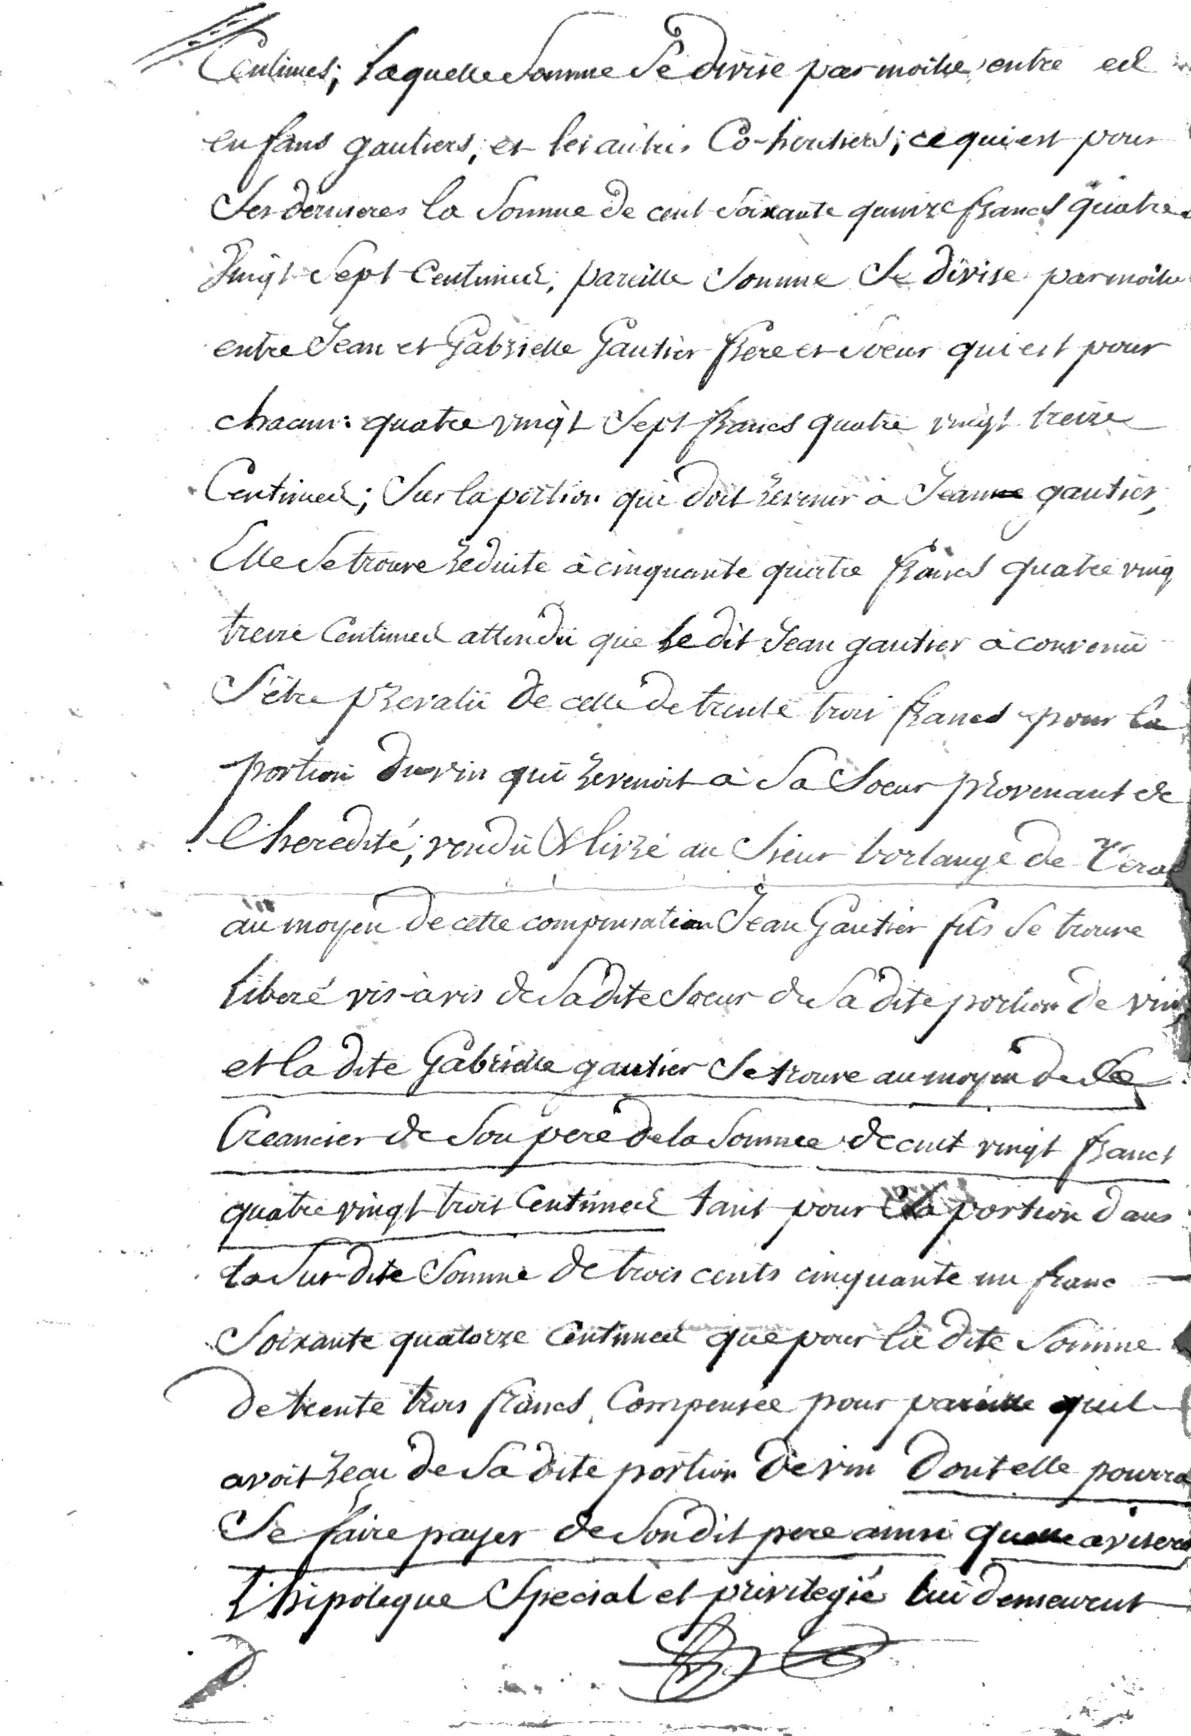 Centimes; laquelle Somme Se divise par moitié entre ed
enfans gautiers, et les autres Co-heritiers; ce qui est pour
Ses dernieres la Somme de cent Soixante quinze francs quatre
Vingt Sept Centimes, pareille Somme Se divise par moitie
entre Jean et Gabrielle Gautier frere et Soeur qui est pour
chacun: quatre vingt Sept francs quatre vingt treize
Centimes; Sur la portion qui doit revenir à Jeanne gautier,
Elle Se trouve reduite à cinquante quatre francs quatre ving
treize Centimes attendu que le dit Jean gautier à convenu
S'être prevalu de celle de trente trois francs pour la
portion du vin qui revenoit à Sa Soeur provenant de
l'heredité; vendu & livré au Sieur borlange de
au moyen de cette compensation Jean Gautier fils Se trouve
liberé vis-àvis de Sa dite Soeur de Sa dite portion de vin
et la dite Gabrielle gautier Se trouve au moyen de Ce
Creancier de Son pere de la Somme de cent vingt francs
quatre vingt trois Centimes tant pour Sa portion dans
la Sur dite Somme de trois cents cinquante un franc
Soixante quatorze Centimes que pour la dite Somme
de trente trois francs Compensée pour pareille quil
avoit reçu de Sa dite portion de vin dont elle pourra
Se faire payer de Son dit pere ainsi quelle avisera
l'hipoteque Special et privilegié lui demeurent